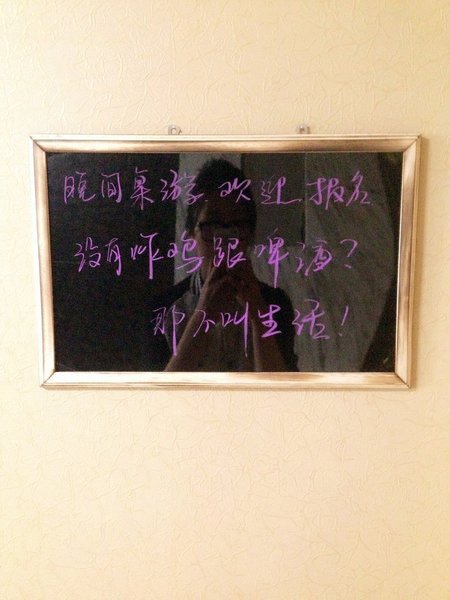 晚间桌游 欢迎报名
没有炸鸡跟啤酒?
那不叫生活!